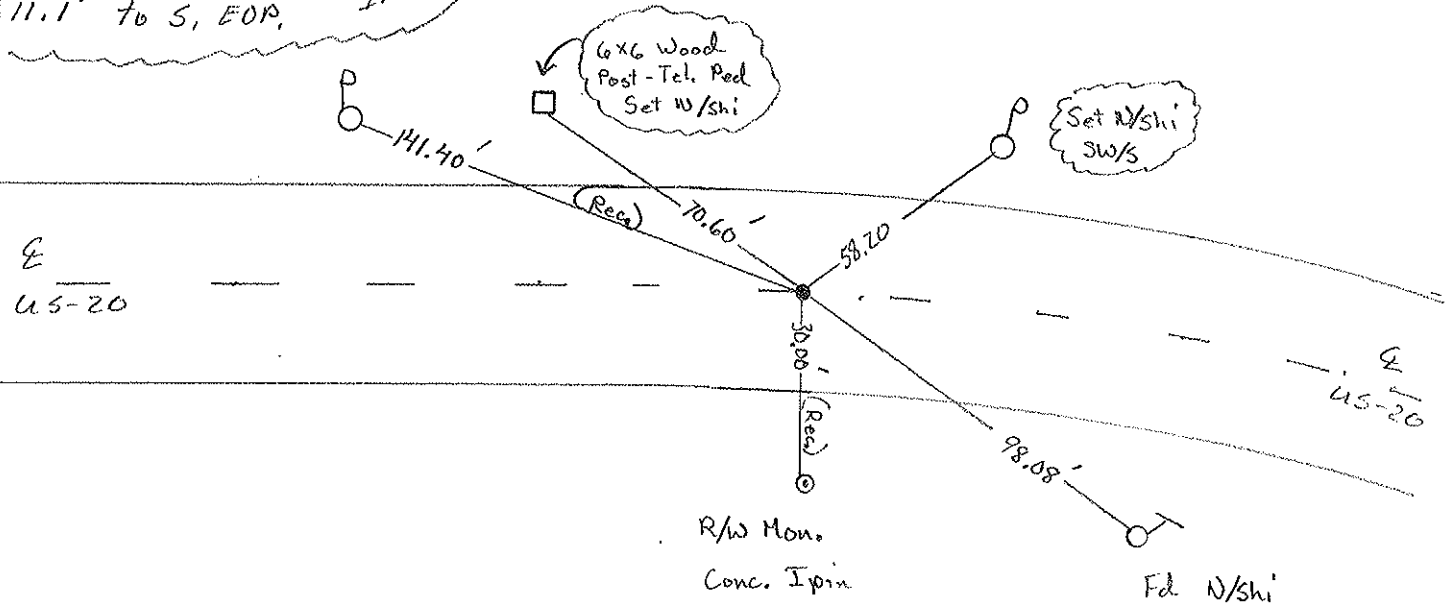 11.1' to S, EOP.
6x6 Wood
Post-Tel. Ped
Set N/shi
Set N/shi
SW/S
141.40'
(Rec.)
70.60'
58.20
℄
US-20
30.00'
(Rec.)
℄
US-20
98.08'
R/W Mon.
Conc. Ipin
Fd N/shi